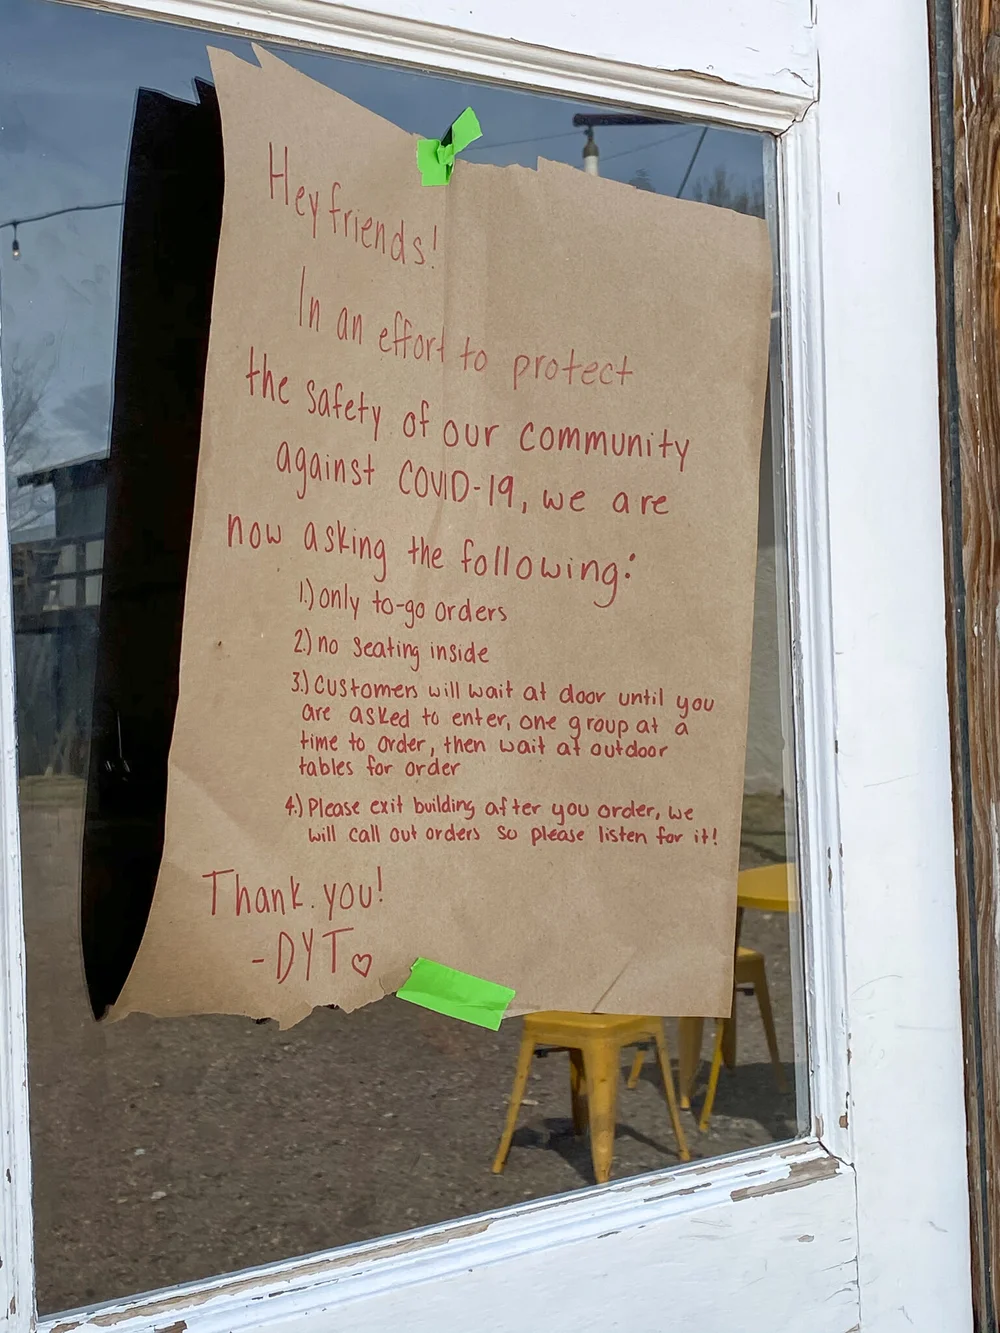 Hey friends!
In an effort to protect
the safety of our community
against COVID-19, we are
now asking the following:
1.) only to-go orders
2.) no seating inside
3.) Customers will wait at door until you
are asked to enter, one group at a
time to order, then wait at outdoor
tables for order
4.) Please exit building after you order, we
will call out orders so please listen for it!
Thank you!
-DYT♡